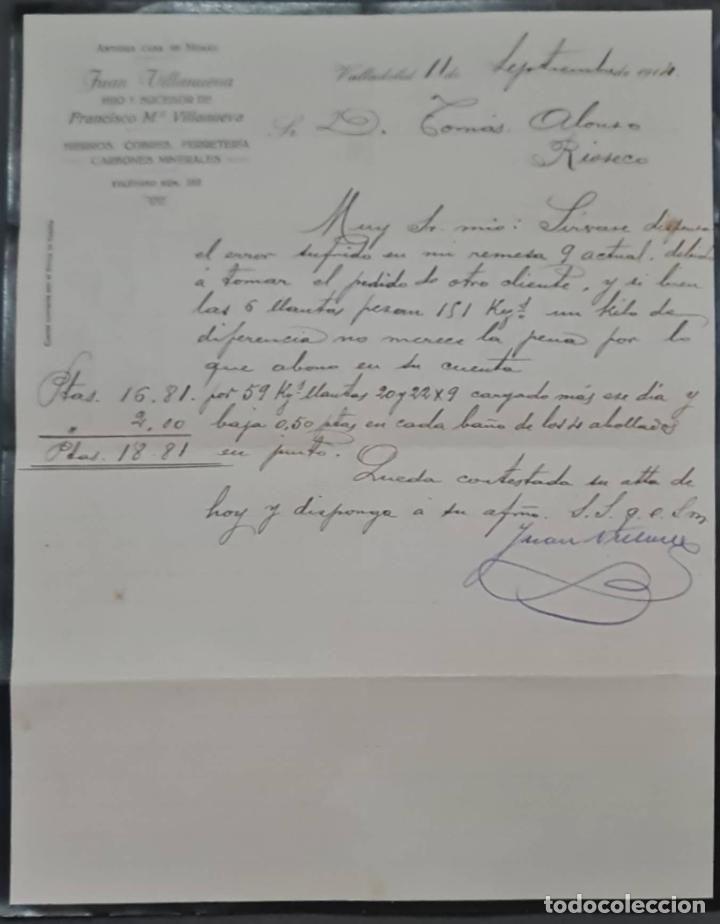 Antigua casa de
Juan Villanueva
HIJO Y SUCESOR DE
Francisco Mª Villanueva
HIERROS, COBRES, FERRETERÍA
CARBONES MINERALES
TELÉFONO NÚM.
Valladolid 11 de Septiembre de 1914.
Sr. D. Tomás Alonso
Rioseco
Muy Sr. mio: Sírvase dispensar
el error sufrido en mi remesa 9 actual, debido
á tomar el pedido de otro cliente, y si bien
las 6 llantas pesan 151 Kgs. un kilo de
diferencia no merece la pena por lo
que abono en su cuenta
Ptas. 16.81. por 59 Kgs. llantas 20 y 22 x 9 cargado más ese dia y
" 2,00 baja 0,50 ptas en cada baño de los 4 abollados
Ptas. 18.81 en junto.
Queda contestada su atta de
hoy y disponga á su afmo. S.S.q.e.S.m
Juan Villanueva
todocoleccion.net